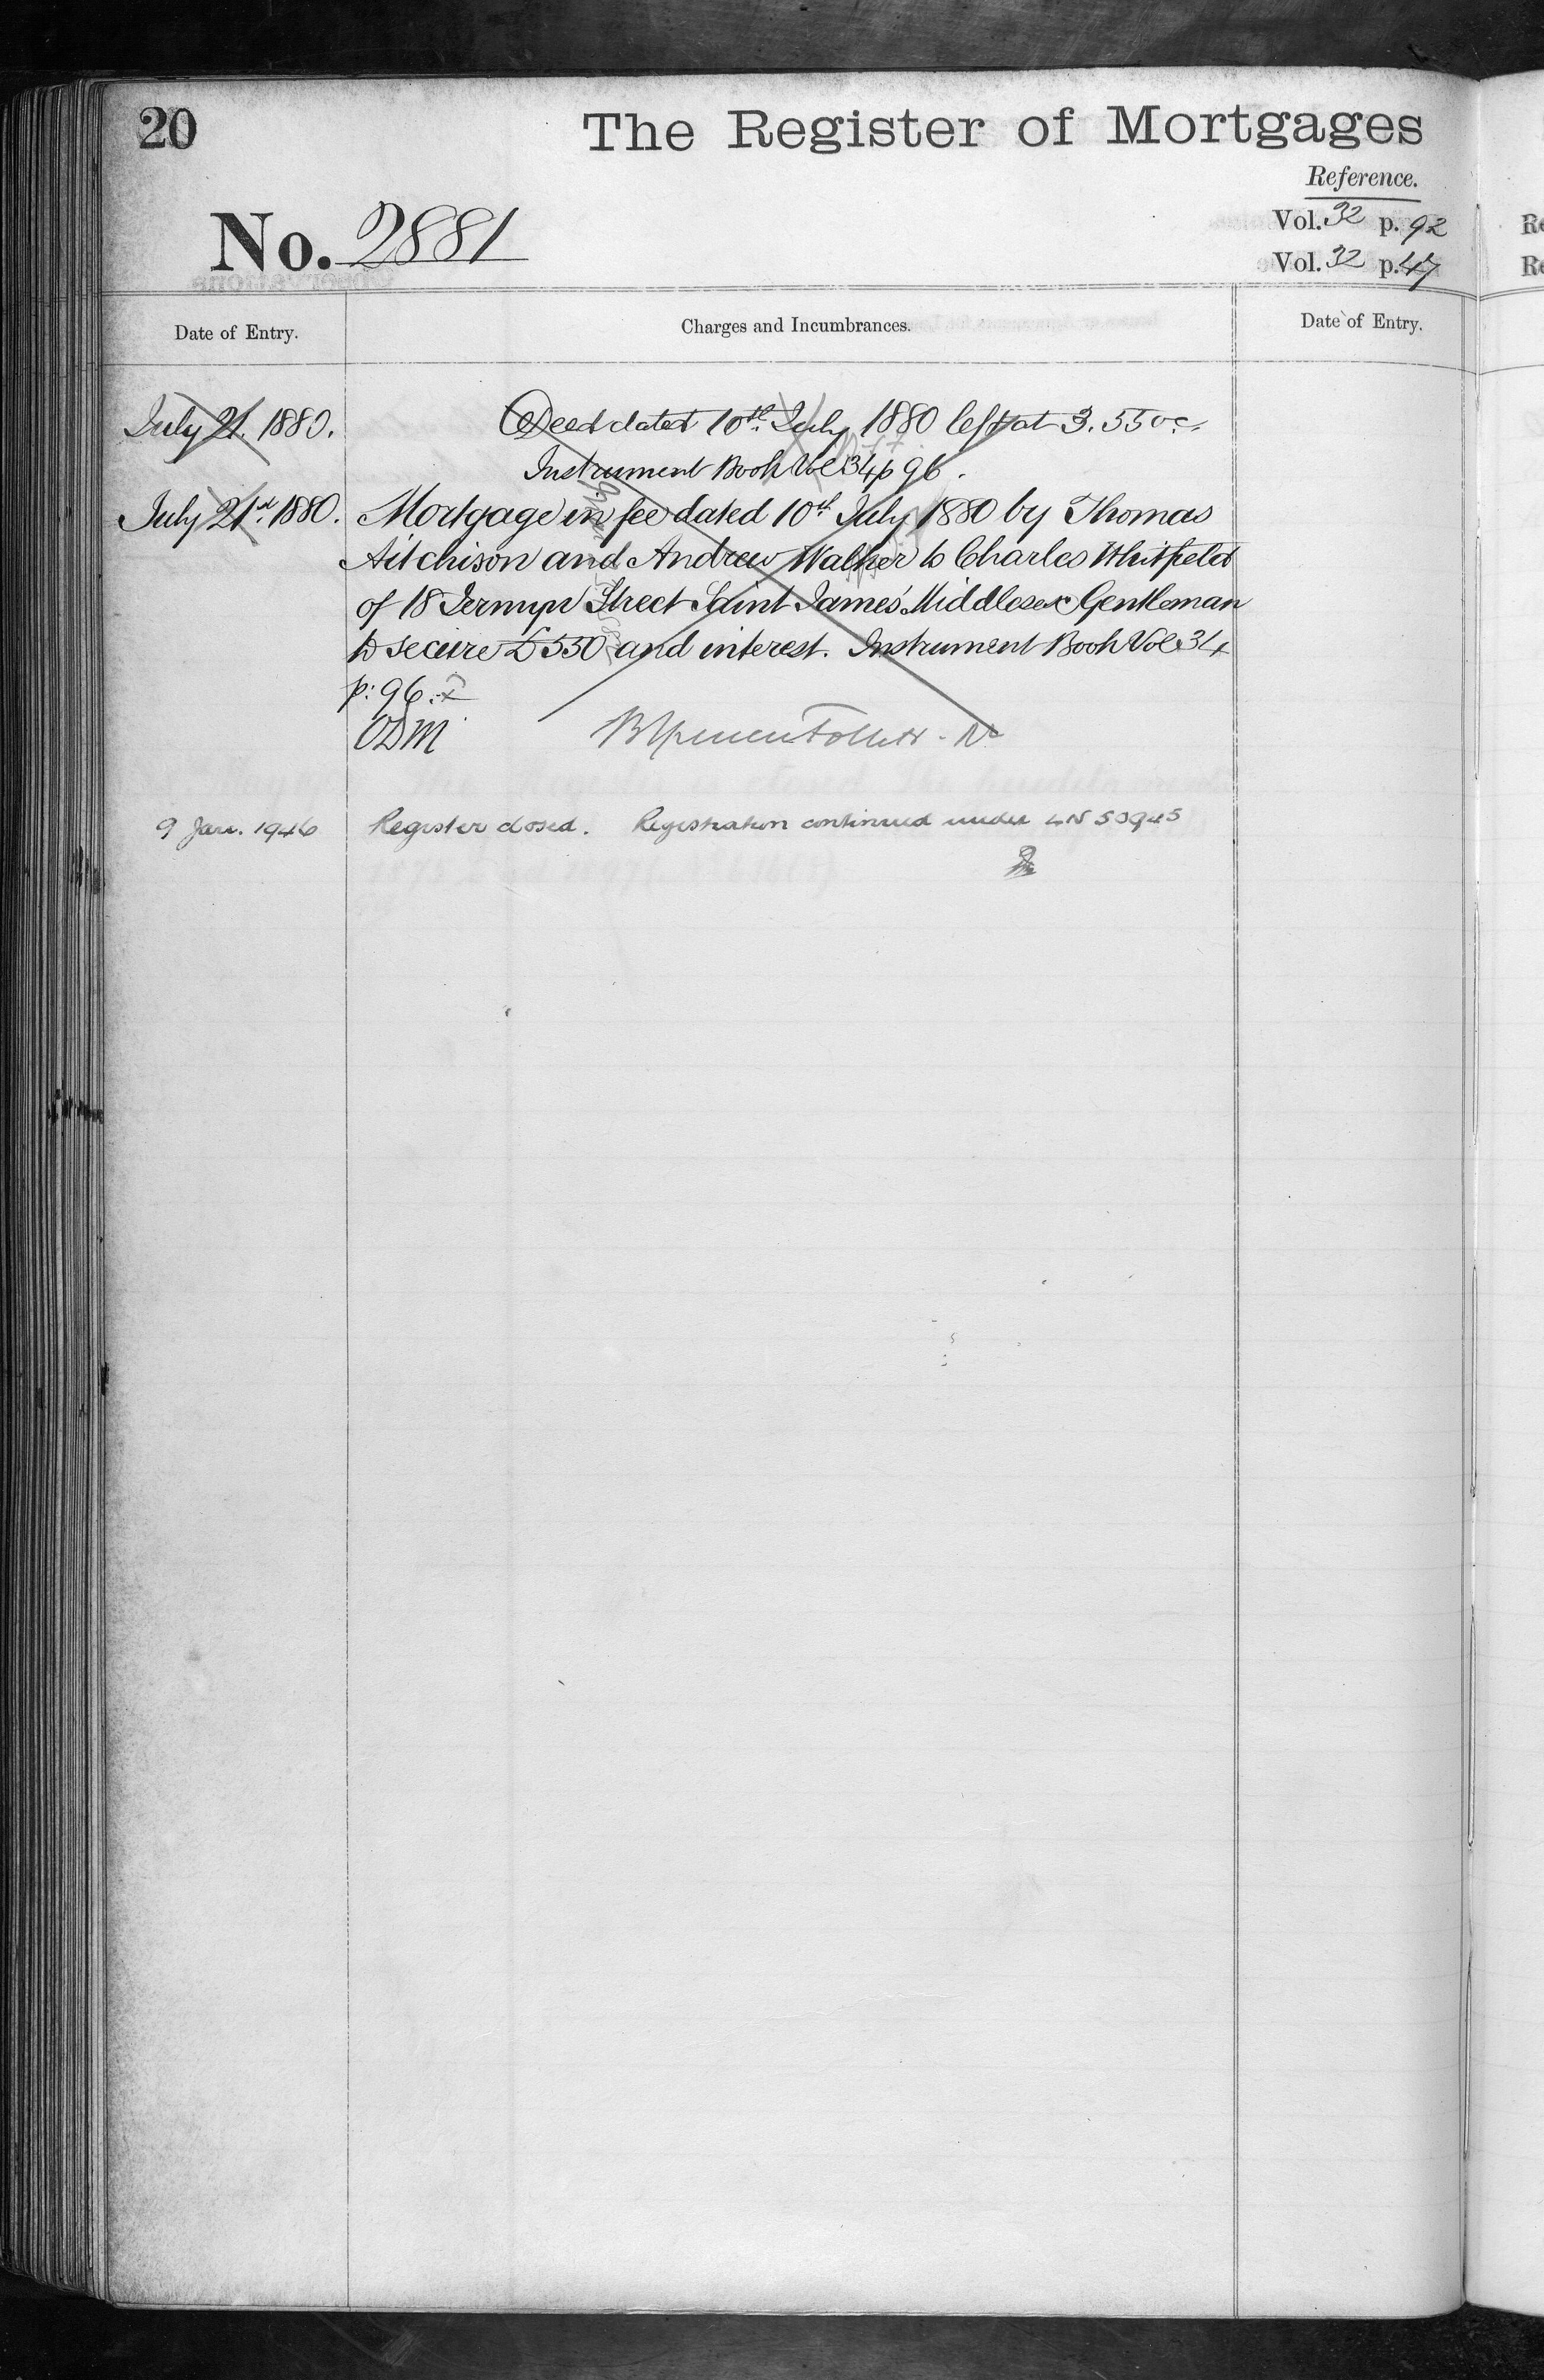 20
The Register of Mortgages
Reference.
No. 2881
Vol. 32 p. 92
Vol. 32 p. 47
Date of Entry.
Charges and Incumbrances.
Date of Entry.
July 21. 1880.
Deed dated 10th July 1880 left at 3.55 o.c.
Instrument Book Vol 34 p 96.
July 21st 1880.
Mortgage in fee dated 10th July 1880 by Thomas
Aitchison and Andrew Walker to Charles Whitfield
of 18 Jermyn Street Saint James' Middlesex Gentleman
to secure £550 and interest. Instrument Book Vol 34
p: 96.
9 Jan. 1946
Register closed. Registration continued under LN 50945
Re
Re